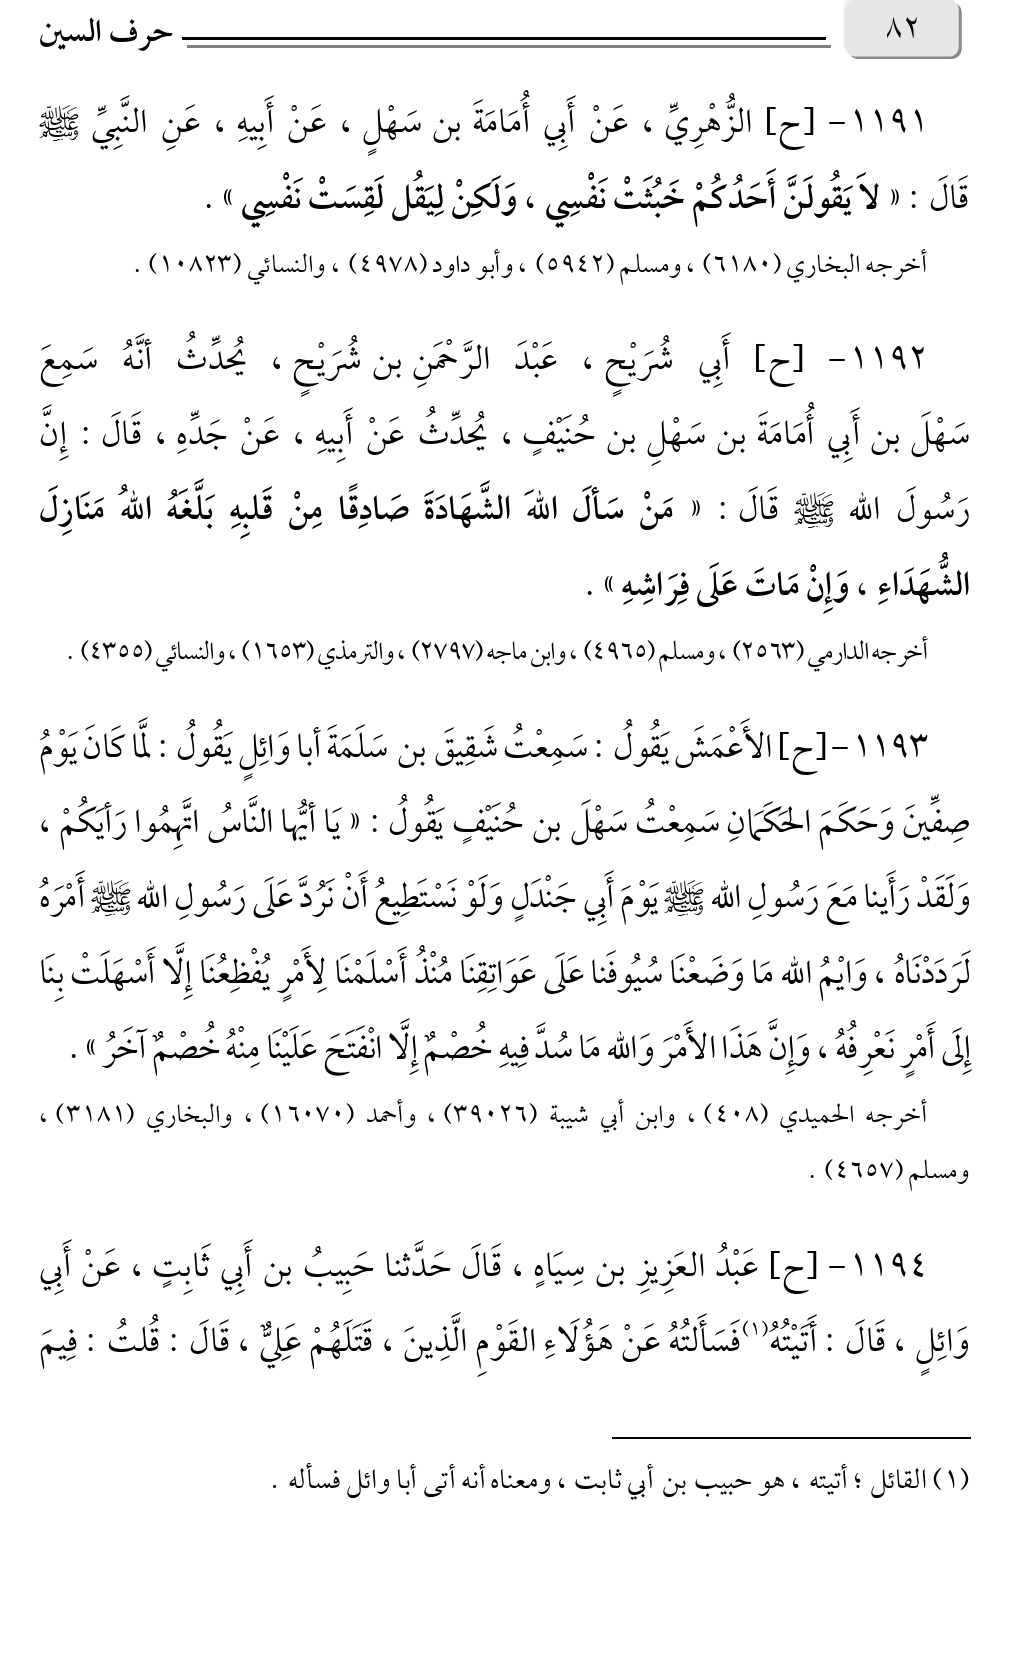 ٨٢ حرف السين
١١٩١- [ح] الزُّهْرِيِّ ، عَنْ أَبِي أُمَامَةَ بن سَهْلٍ ، عَنْ أَبِيهِ ، عَنِ النَّبِيِّ ﷺ
قَالَ : « لاَ يَقُولَنَّ أَحَدُكُمْ خَبُثَتْ نَفْسِي ، وَلَكِنْ لِيَقُل لَقِسَتْ نَفْسِي » .
أخرجه البخاري (٦١٨٠) ، ومسلم (٥٩٤٢) ، وأبو داود (٤٩٧٨) ، والنسائي (١٠٨٢٣) .
١١٩٢- [ح] أَبِي شُرَيْحٍ ، عَبْدَ الرَّحْمَنِ بن شُرَيْحٍ ، يُحدِّثُ أنَّهُ سَمِعَ
سَهْلَ بن أَبِي أُمَامَةَ بن سَهْلِ بن حُنَيْفٍ ، يُحدِّثُ عَنْ أَبِيهِ ، عَنْ جَدِّهِ ، قَالَ : إِنَّ
رَسُولَ الله ﷺ قَالَ : « مَنْ سَألَ اللهَ الشَّهَادَةَ صَادِقًا مِنْ قَلبِهِ بَلَّغَهُ اللهُ مَنَازِلَ
الشُّهَدَاءِ ، وَإِنْ مَاتَ عَلَى فِرَاشِهِ » .
أخرجه الدارمي (٢٥٦٣) ، ومسلم (٤٩٦٥) ، وابن ماجه (٢٧٩٧) ، والترمذي (١٦٥٣) ، والنسائي (٤٣٥٥) .
١١٩٣- [ح] الأَعْمَشَ يَقُولُ : سَمِعْتُ شَقِيقَ بن سَلَمَةَ أبا وَائِلٍ يَقُولُ : لمَّا كَانَ يَوْمُ
صِفِّينَ وَحَكَمَ الحَكَمَانِ سَمِعْتُ سَهْلَ بن حُنَيْفٍ يَقُولُ : « يَا أيُّها النَّاسُ اتَّهِمُوا رَأيَكُمْ ،
وَلَقَدْ رَأَينا مَعَ رَسُولِ الله ﷺ يَوْمَ أَبِي جَنْدَلٍ وَلَوْ نَسْتَطِيعُ أَنْ نَرُدَّ عَلَى رَسُولِ الله ﷺ أَمْرَهُ
لَرَدَدْنَاهُ ، وَايْمُ الله مَا وَضَعْنَا سُيُوفَنا عَلَى عَوَاتِقِنَا مُنْذُ أَسْلَمْنَا لِأَمْرٍ يُفْظِعُنَا إِلَّا أَسْهَلَتْ بِنَا
إِلَى أَمْرٍ نَعْرِفُهُ ، وَإِنَّ هَذَا الأَمْرَ وَالله مَا سُدَّ فِيهِ خُصْمٌ إِلَّا انْفَتَحَ عَلَيْنَا مِنْهُ خُصْمٌ آخَرُ » .
أخرجه الحميدي (٤٠٨) ، وابن أبي شيبة (٣٩٠٢٦) ، وأحمد (١٦٠٧٠) ، والبخاري (٣١٨١) ،
ومسلم (٤٦٥٧) .
١١٩٤- [ح] عَبْدُ العَزِيزِ بن سِيَاهٍ ، قَالَ حَدَّثنا حَبِيبُ بن أَبِي ثَابِتٍ ، عَنْ أَبِي
وَائِلٍ ، قَالَ : أَتَيْتُهُ(١) فَسَأَلتُهُ عَنْ هَؤُلَاءِ القَوْمِ الَّذِينَ ، قَتَلَهُمْ عَلِيٌّ ، قَالَ : قُلتُ : فِيمَ
(١) القائل ؛ أتيته ، هو حبيب بن أبي ثابت ، ومعناه أنه أتى أبا وائل فسأله .